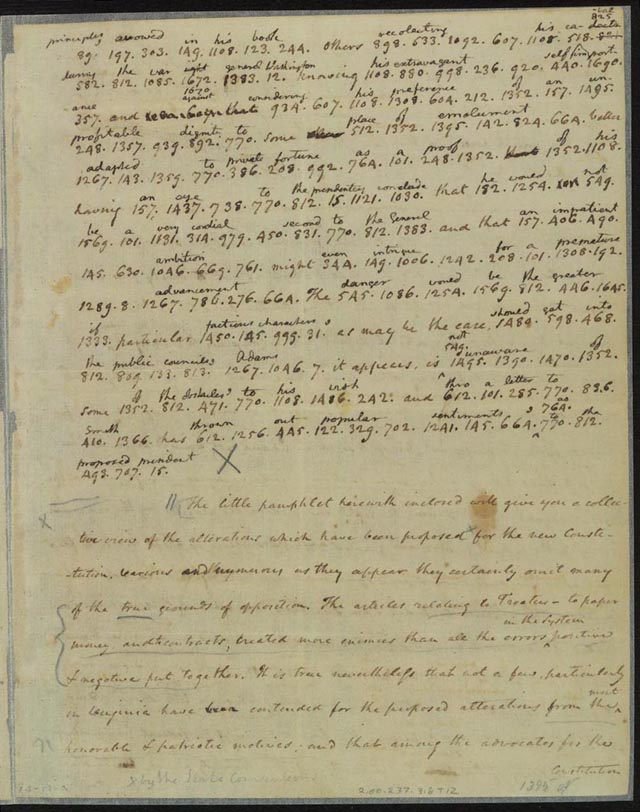 -cal
825
principles avowed in his book recolecting his ca-
89. 197. 303. 149. 1108. 123. 244. Others 898. 633. 1092. 607. 1108. 518.
during the war against general Washington his extravagant self import-
582. 812. 1085. 1672. 1383. 12. knowing 1108. 880. 998. 236. 920. 440. 1690.
1670
ance against considering his preference of an un-
357. and 934. 607. 1108. 1308. 604. 212. 1352. 157. 1495.
profitable dignity to place of emolument
248. 1357. 939. 892. 770. some 512. 1352. 1395. 142. 824. 664. better
adapted to private fortune as a proof of his
1267. 143. 1359. 770. 386. 208. 992. 764. 101. 248. 1352. 1352. 1108.
having an eye to the presidency conclude not
157. 1437. 738. 770. 812. 15. 1121. 1030. that he would
182. 1254. 549.
be a very cordial second to the General an impatient
1569. 101. 1131. 314. 979. 450. 831. 770. 812. 1383. and that 157. 406. 490.
ambition even intrigue for a premature
145. 630. 1046. 669. 761. might 344. 149. 1006. 1242. 208. 101. 1308. 192.
advancement danger would be the greater
1289. 8. 1267. 786. 276. 664. The 545. 1086. 1254. 1569. 812. 446. 1645.
if factious characters should get into
1333. particular 1450. 145. 999. 31. as may be the case, 1489. 598. 468.
the public councils Adams not unaware of
812. 809. 133. 813. 1267. 1046. 7. it appears, is 549. 1495. 1390. 1470. 1352.
of the obstacles to his wish thro a letter to
some 1352. 812. 471. 770. 1108. 1486. 242. and 612. 101. 285. 770. 836.
Smith thrown out popular sentiments as the
410. 1366. has 612. 1256. 445. 122. 329. 702. 1241. 145. 664. 764. 770. 812.
proposed president
493. 707. 15.
The little pamphlet herewith inclosed will give you a collec-
tive view of the alterations which have been proposed for the new Consti-
-tution. Various and numerous as they appear they certainly omit many
of the true grounds of opposition. The articles relating to Treaties - to paper
money, and to contracts, created more enemies than all the errors in the System positive
& negative put together. It is true nevertheless that not a few, particularly
in Virginia have contended for the proposed alterations from the most
honorable & patriotic motives; and that among the advocates for the
Constitution
x by the State Conventions
1395 of